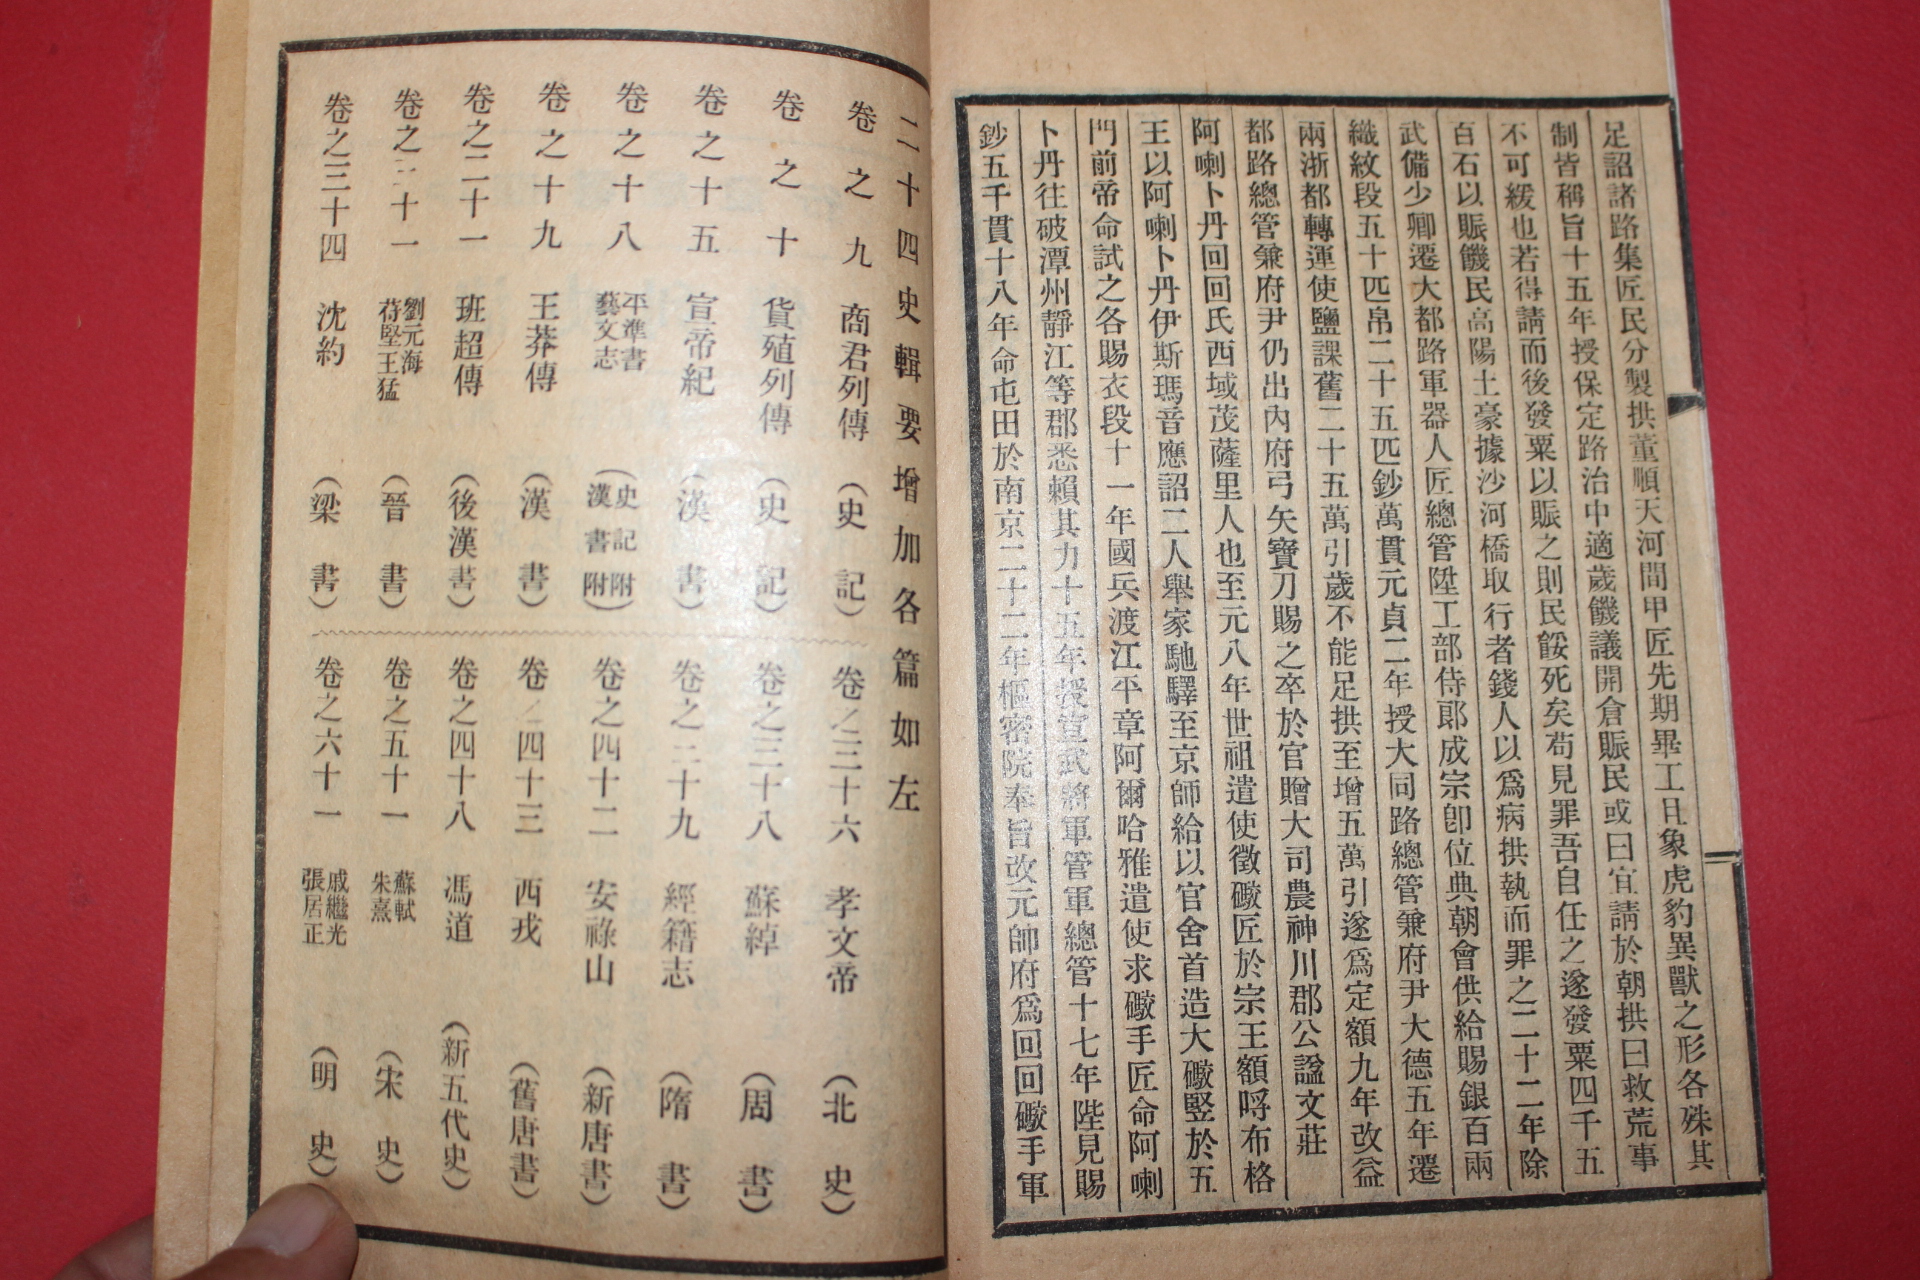 足詔諸路集匠民分製拱董順天河間甲匠先期畢工且象虎豹異獸之形各殊其
制皆稱旨十五年授保定路治中適歲饑議開倉賑民或曰宜請於朝拱曰救荒事
不可緩也若得請而後發粟以賑之則民餒死矣苟見罪吾自任之遂發粟四千五
百石以賑饑民高陽土豪據沙河橋取行者錢人以爲病拱執而罪之二十二年除
武備少卿遷大都路軍器人匠總管陞工部侍郎成宗卽位典朝會供給賜銀百兩
織紋段五十匹帛二十五匹鈔萬貫元貞二年授大同路總管兼府尹大德五年遷
兩浙都轉運使鹽課舊二十五萬引歲不能足拱至增五萬引遂爲定額九年改益
都路總管兼府尹仍出內府弓矢寶刀賜之卒於官贈大司農神川郡公諡文莊
阿喇卜丹回回氏西域茂薩里人也至元八年世祖遣使徵礮匠於宗王額呼布格
王以阿喇卜丹伊斯瑪音應詔二人舉家馳驛至京師給以官舍首造大礮竪於五
門前帝命試之各賜衣段十一年國兵渡江平章阿爾哈雅遣使求礮手匠命阿喇
卜丹往破潭州靜江等郡悉賴其力十五年授宣武將軍管軍總管十七年陛見賜
鈔五千貫十八年命屯田於南京二十二年樞密院奉旨改元帥府爲回回礮手軍
二十四史輯要增加各篇如左
卷之九 商君列傳 （史記）
卷之十 貨殖列傳 （史記）
卷之十五 宣帝紀 （漢書）
卷之十八 平準書 藝文志 （史記附 漢書附）
卷之十九 王莽傳 （漢書）
卷之二十一 班超傳 （後漢書）
卷之十一 劉元海 苻堅王猛 （晉書）
卷之三十四 沈約 （梁書）
卷之三十六 孝文帝 （北史）
卷之三十八 蘇綽 （周書）
卷之三十九 經籍志 （隋書）
卷之四十二 安祿山 （新唐書）
卷之四十三 西戎 （舊唐書）
卷之四十八 馮道 （新五代史）
卷之五十一 蘇軾 朱熹 （宋史）
卷之六十一 戚繼光 張居正 （明史）